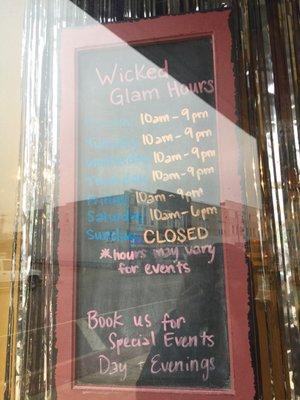 Wicked
Glam Hours
Monday 10am - 9pm
Tuesday 10am - 9pm
Wednesday 10am - 9pm
Thursday 10am - 9pm
Friday 10am - 9pm
Saturday 10am - 6pm
Sunday CLOSED
*hours may vary
for events
Book us for
Special Events
Day - Evenings